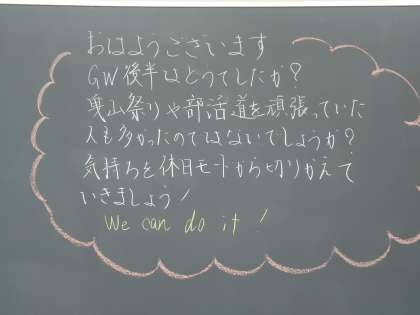 おはようございます
GW後半はどうでしたか?
曳山祭りや部活道を頑張っていた
人も多かったのではないでしょうか?
気持ちを休日モードから切りかえて
いきましょう!
We can do it!